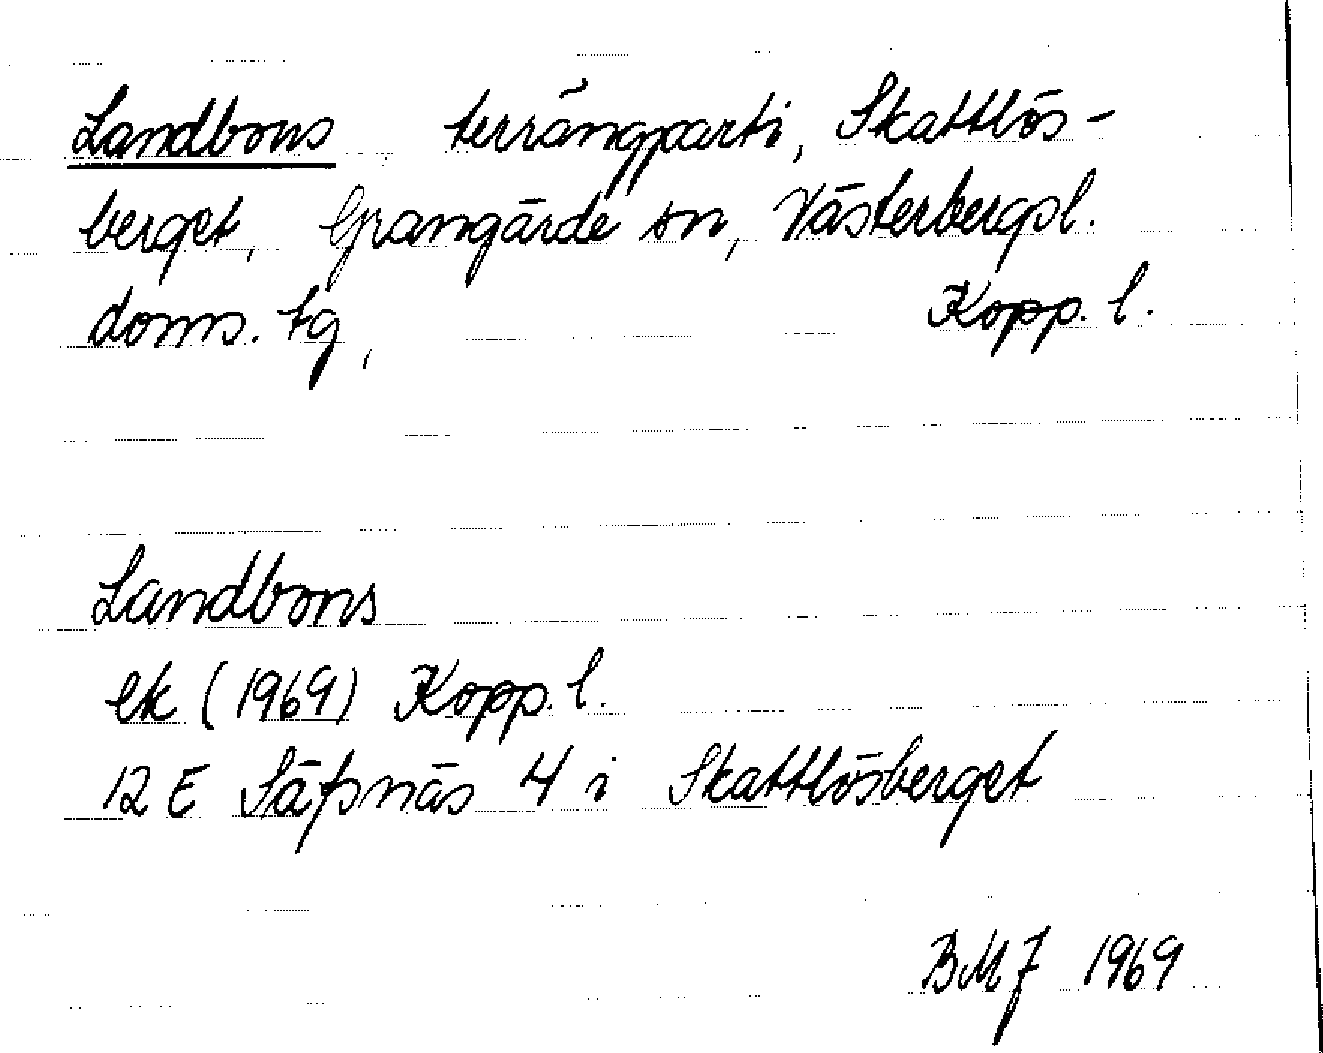 Landbons terrängparti, Skattlös-
berget, Grangärde sn, Västerbergsl.
doms. tg, Kopp. l.
Landbons
ek (1969) Kopp. l.
12 E Säfsnäs 4 i Skattlösberget
BMJ 1969